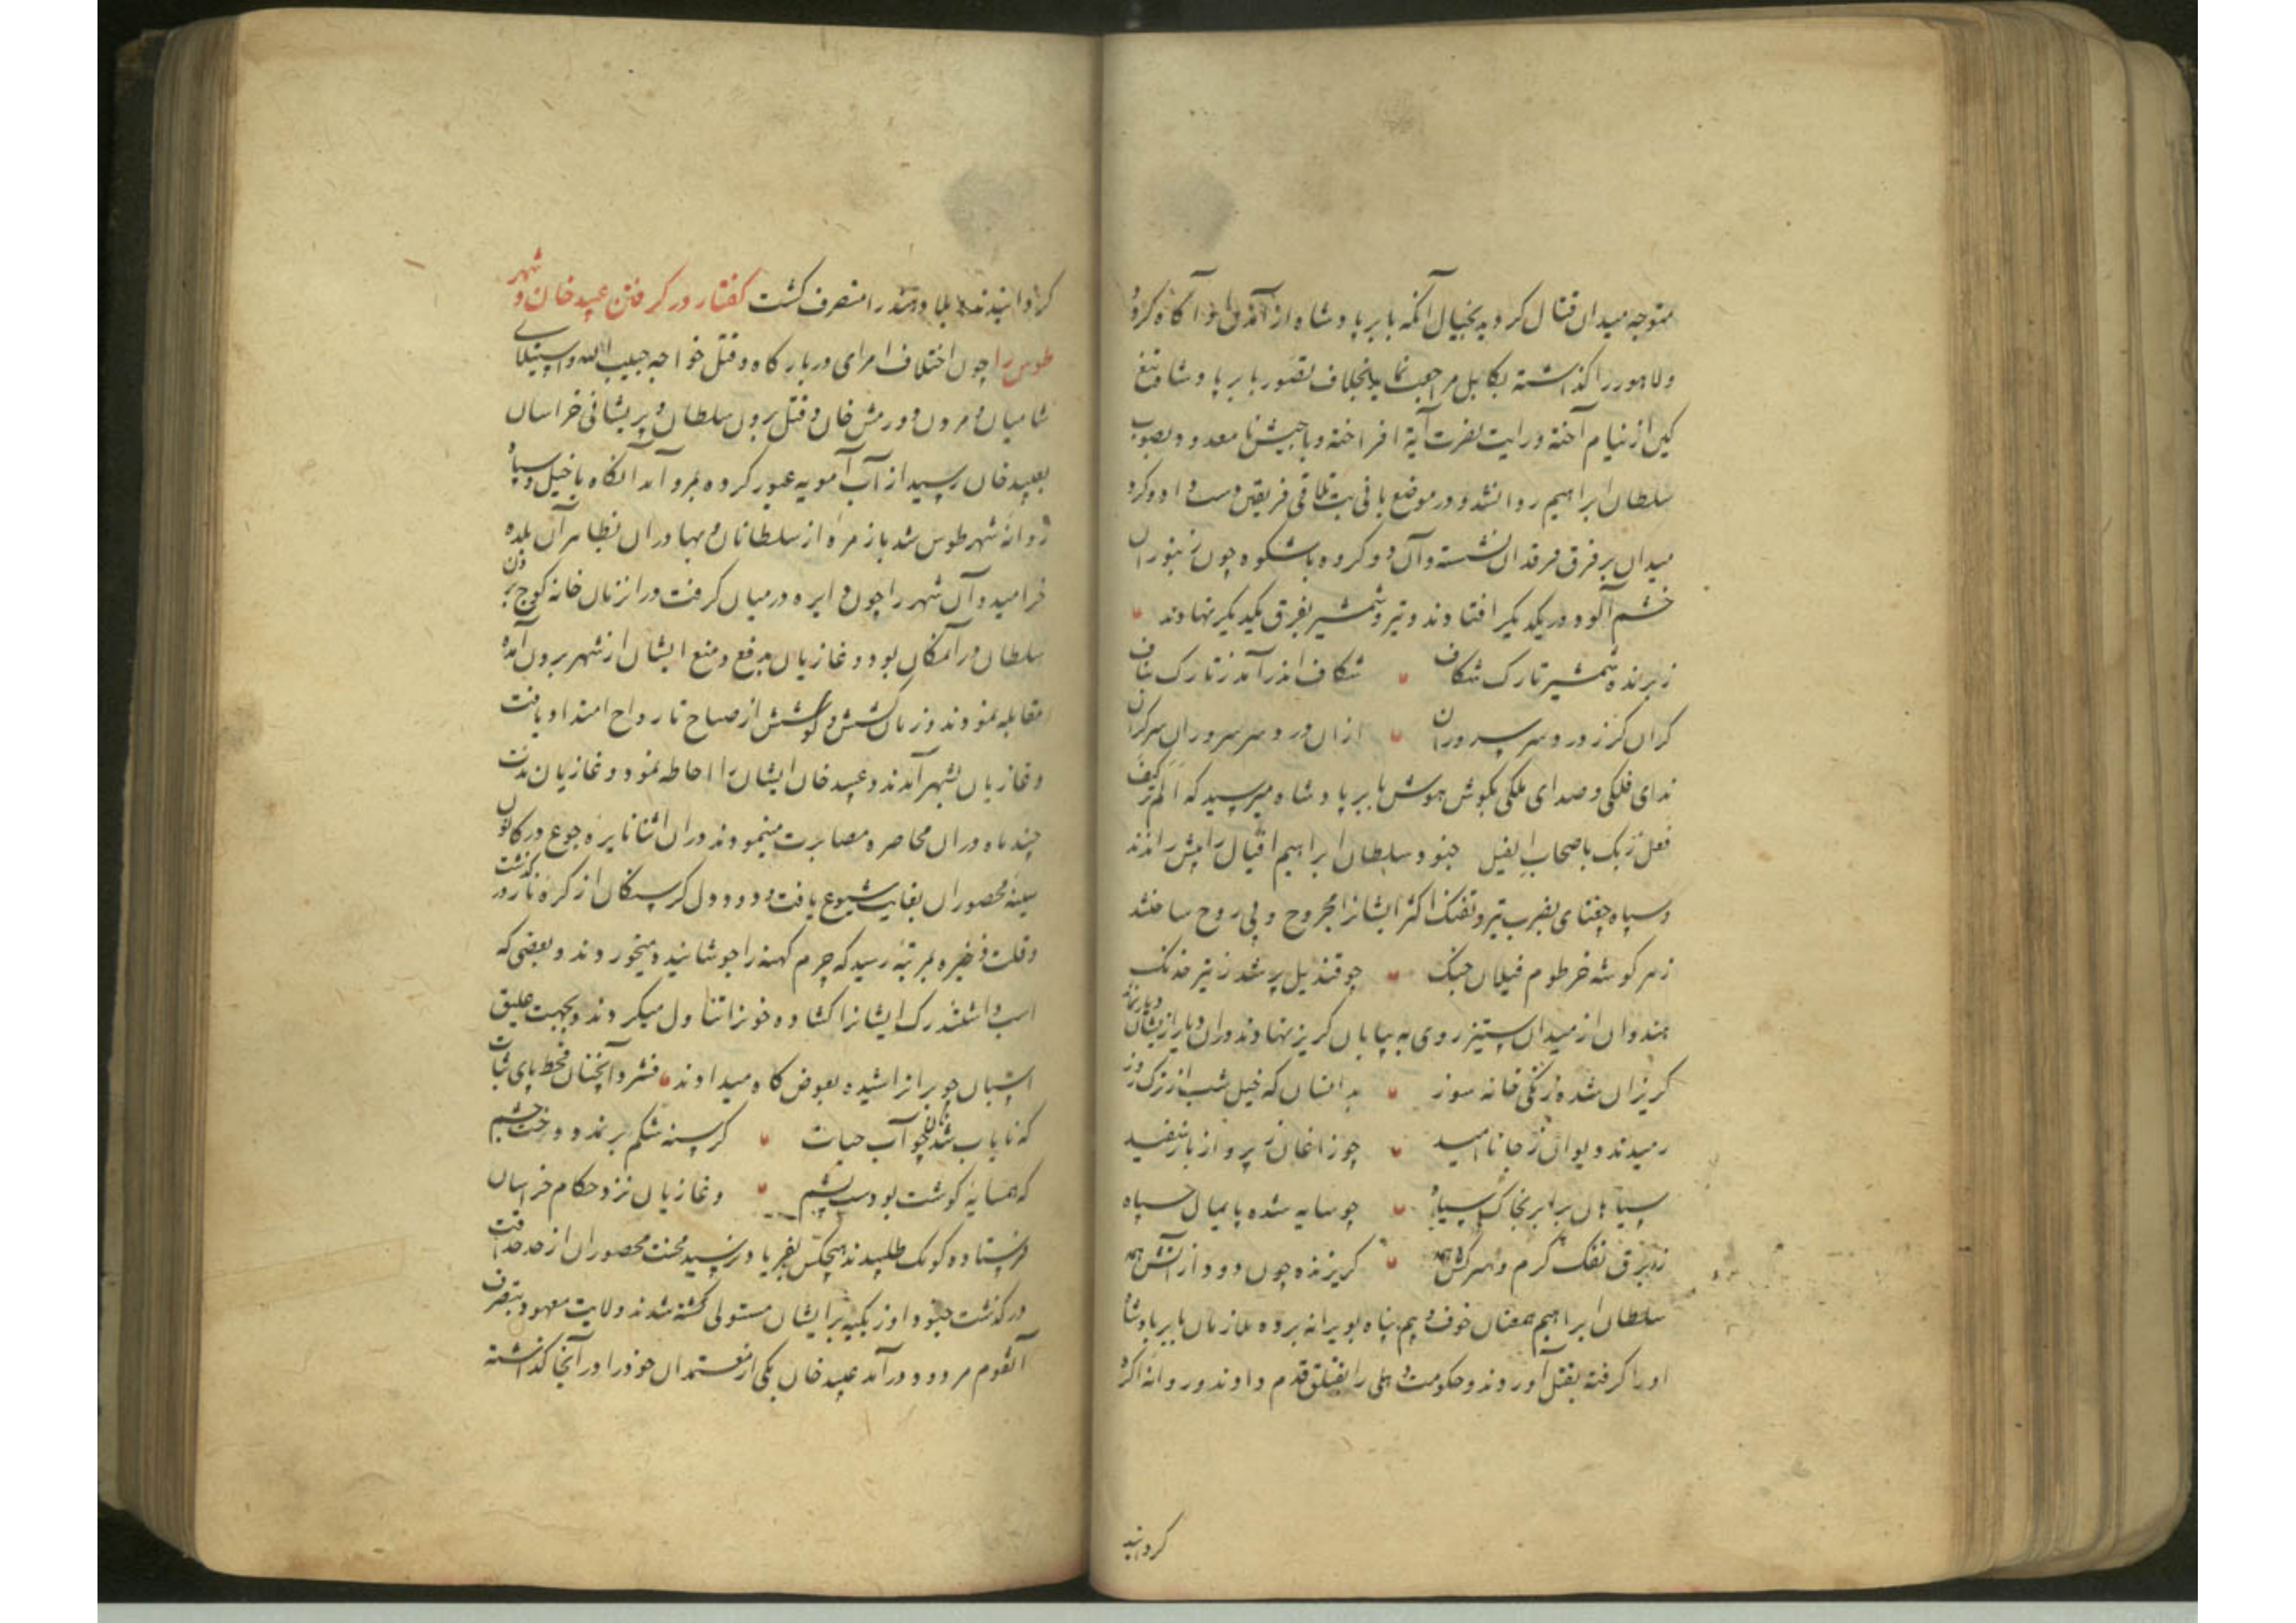 متوجه میدان قتال کردید بخیال آنکه بابر پادشاه از آمدن او آکاه کردد
ولاهور را کذاشته بکابل مراجعت نماید بخلاف تصور بابر پادشاه تیغ
کین از نیام آخته ورایت نصرت آیة افراخته وباجیش نا معدود بصوب
سلطان ابراهیم روانشد و در موضع پانی پت تلاقی فریقین دست داد و کرد
میدان بر فرق فرقدان نشسته وآن دو کروه باشکوه چون زنبوران
خشم آلود در یکدیکر افتادند وتیر وشمشیر بفرق یکدیکر نهادند
ز برنده شمشیر تارک شکاف شکاف اندر آمد ز تارک بناف
کران کرز در و سر سروران ازان در و سر سروران سرکران
ندای فلکی وصدای ملکی بکوش هوش بابر پادشاه میرسید که الم تر کیف
فعل ربک باصحاب الفیل جنود سلطان ابراهیم افیال را پیش راندند
وسپاه چغتای بضرب تیر وتفنک اکثر ایشانرا مجروح و بی روح ساختند
زهر کوشه خرطوم فیلان جنک چو قندیل پر شد ز تیر خدنک
هندوان از میدان ستیز روی به بیابان کریز نهادند دران دیار از یشان دیار نماند
کریزان شده زنکی خانه سوز بدانسان که خیل شب از ترک روز
رمیدند دیوان ز جانا امید چو زاغان ز پرواز باز سفید
سیاهان برابر بخاک سیاه چو سایه شده پایمال سپاه
زبرق تفک کرم وسرکش همه کریزنده چون دود از آتش همه
سلطان ابراهیم همعنان خوف و بیم پناه بویرانه برده ملازمان بابر پادشاه
اورا کرفته بقتل آوردند وحکومت دهلی را بقتلق قدم دادند و روانه اکره
کردانید
کردانیدند بلاد هند را متصرف کشت کفتار در کرفتن عبید خان شهر
طوس را چون اختلاف امرای دربارکاه وقتل خواجه حبیب الله واستیلای
شامیان ومردن دورمش خان وقتل برون سلطان وپریشانی خراسان
بعبید خان رسید از آب آمویه عبور کرده بمرو آمد آنکاه با خیل وسپاه
روانه شهر طوس شد با زمره از سلطانان وبهادران بظاهر آن بلده
خرامید وآن شهر را چون دایره درمیان کرفت دران زمان خانه کوچ برون
سلطان در آنمکان بود وغازیان بدفع ومنع ایشان از شهر برون آمده
مقابله نمودند وزمان کشش وکوشش از صباح تا رواح امتداد یافت
وغازیان بشهر آمدند وعبید خان ایشان را احاطه نمود وغازیان مدت
چند ماه دران محاصره مصابرت مینمودند دران اثنا نایره جوع در کانون
سینه محصوران بغایت شیوع یافت ودود دل کرسنکان از کره نار در کذشت
وقلت ذخیره بمرتبه رسید که چرم کهنه را جوشانیده میخوردند وبعضی که
اسب داشتند رک ایشانرا کشاده خونرا تناول میکردند وبجهت علیق
اسبان چوب را تراشیده بعوض کاه میدادند فشرد آنچنان قحط پای ثبات
که نایاب شد نان چو آب حیات کرسنه شکم برندوخت چشم
که همسایه کوشت بودست پشم وغازیان نزد حکام خراسان
فرستاده کومک طلبیدند هیچکس بفریاد نرسید محنت محصوران از حد طاقت
در کذشت جنود اوزبکیه بر ایشان مستولی کشته شدند ولایت معهود بتصرف
آنقوم مردود در آمد عبید خان یکی از معتمدان خود را در آنجا کذاشته